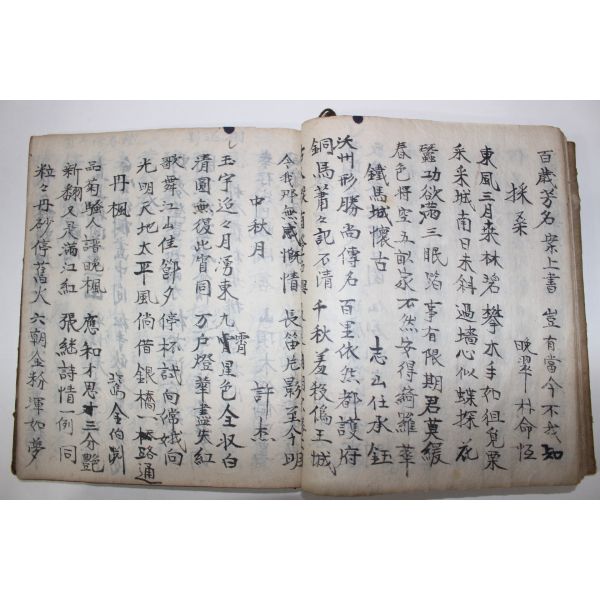 百歲芳名 案上書 豈有當今不我知
採桑 晩翠 朴命恒
東風三月桑林碧 攀水手如狙覓栗
采采城南日未斜 過墻心似蝶探花
蠶功欲滿三眠箔 事有限期君莫緩
春色將空五畝家 不然安得綺羅華
鐵馬城懷古 志山 任永鈺
沃州形勝尚傳名 百里依然都護府
銅馬蕭々記不清 千秋羞殺僞王城
今我那無感慨情 長笛片影至今明
中秋月 許
玉宇迢々月湧東 九霄黑色全収白
清圓無復此宵同 万戶燈華盡失紅
歌舞江山佳節夕 停杯試向嫦娥向
光明天地太平風 倘借銀橋一路通
丹楓 金伯
品菊騷人譜晩楓 應和才思十三分艶
新翻又是滿江紅 張継詩情一例同
粒々丹砂停萬火 六朝金粉渾如夢